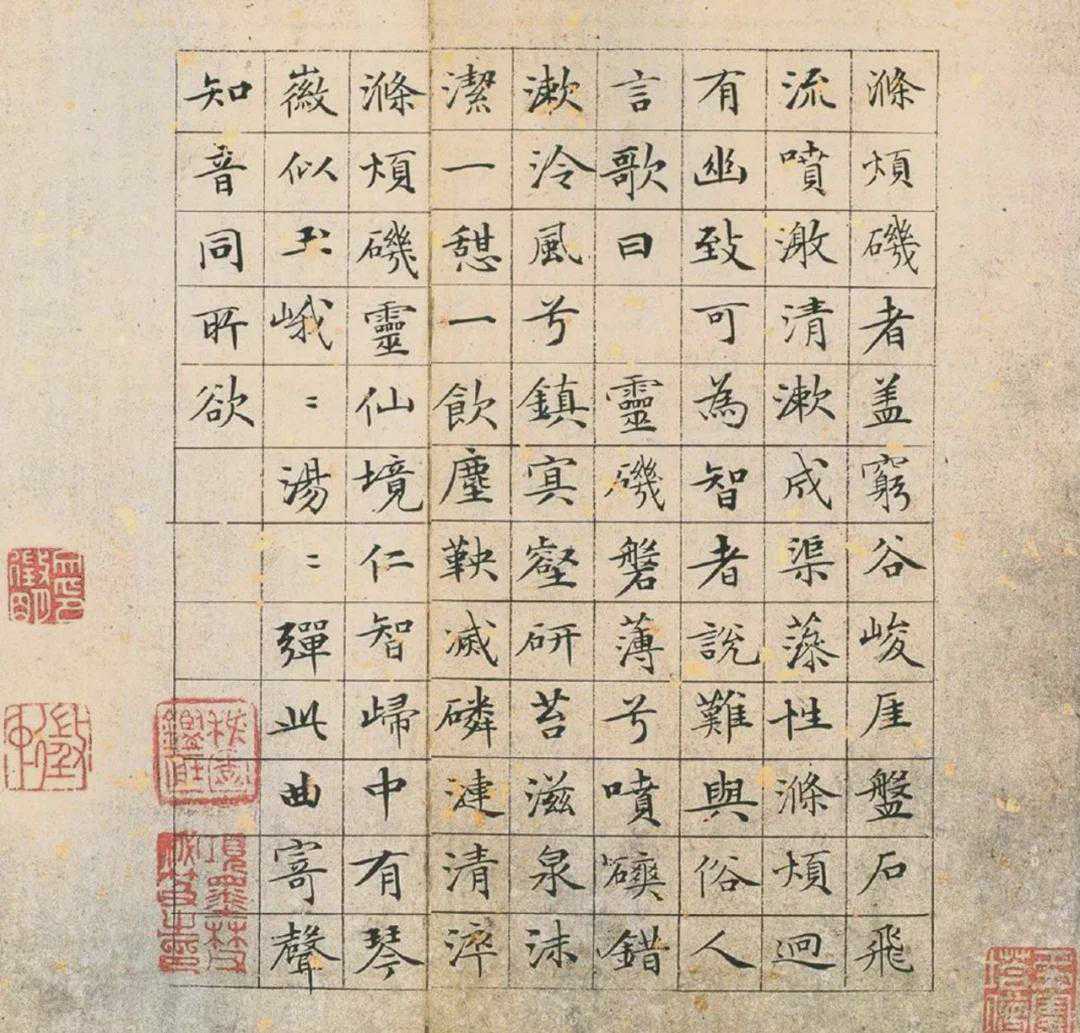 滌煩磯者盖窮谷峻厓盤石飛
流噴激清漱成渠藻性滌煩迥
有幽致可為智者說難與俗人
言歌曰　靈磯磐薄兮噴錯
漱泠風兮鎮㝠壑研苔滋泉沫
潔一憩一飲塵鞅滅磷漣清淬
滌煩磯靈仙境仁智歸中有琴
徽似玉峨〻湯〻彈此曲寄聲
知音同所欲
項墨林父
秘笈之印